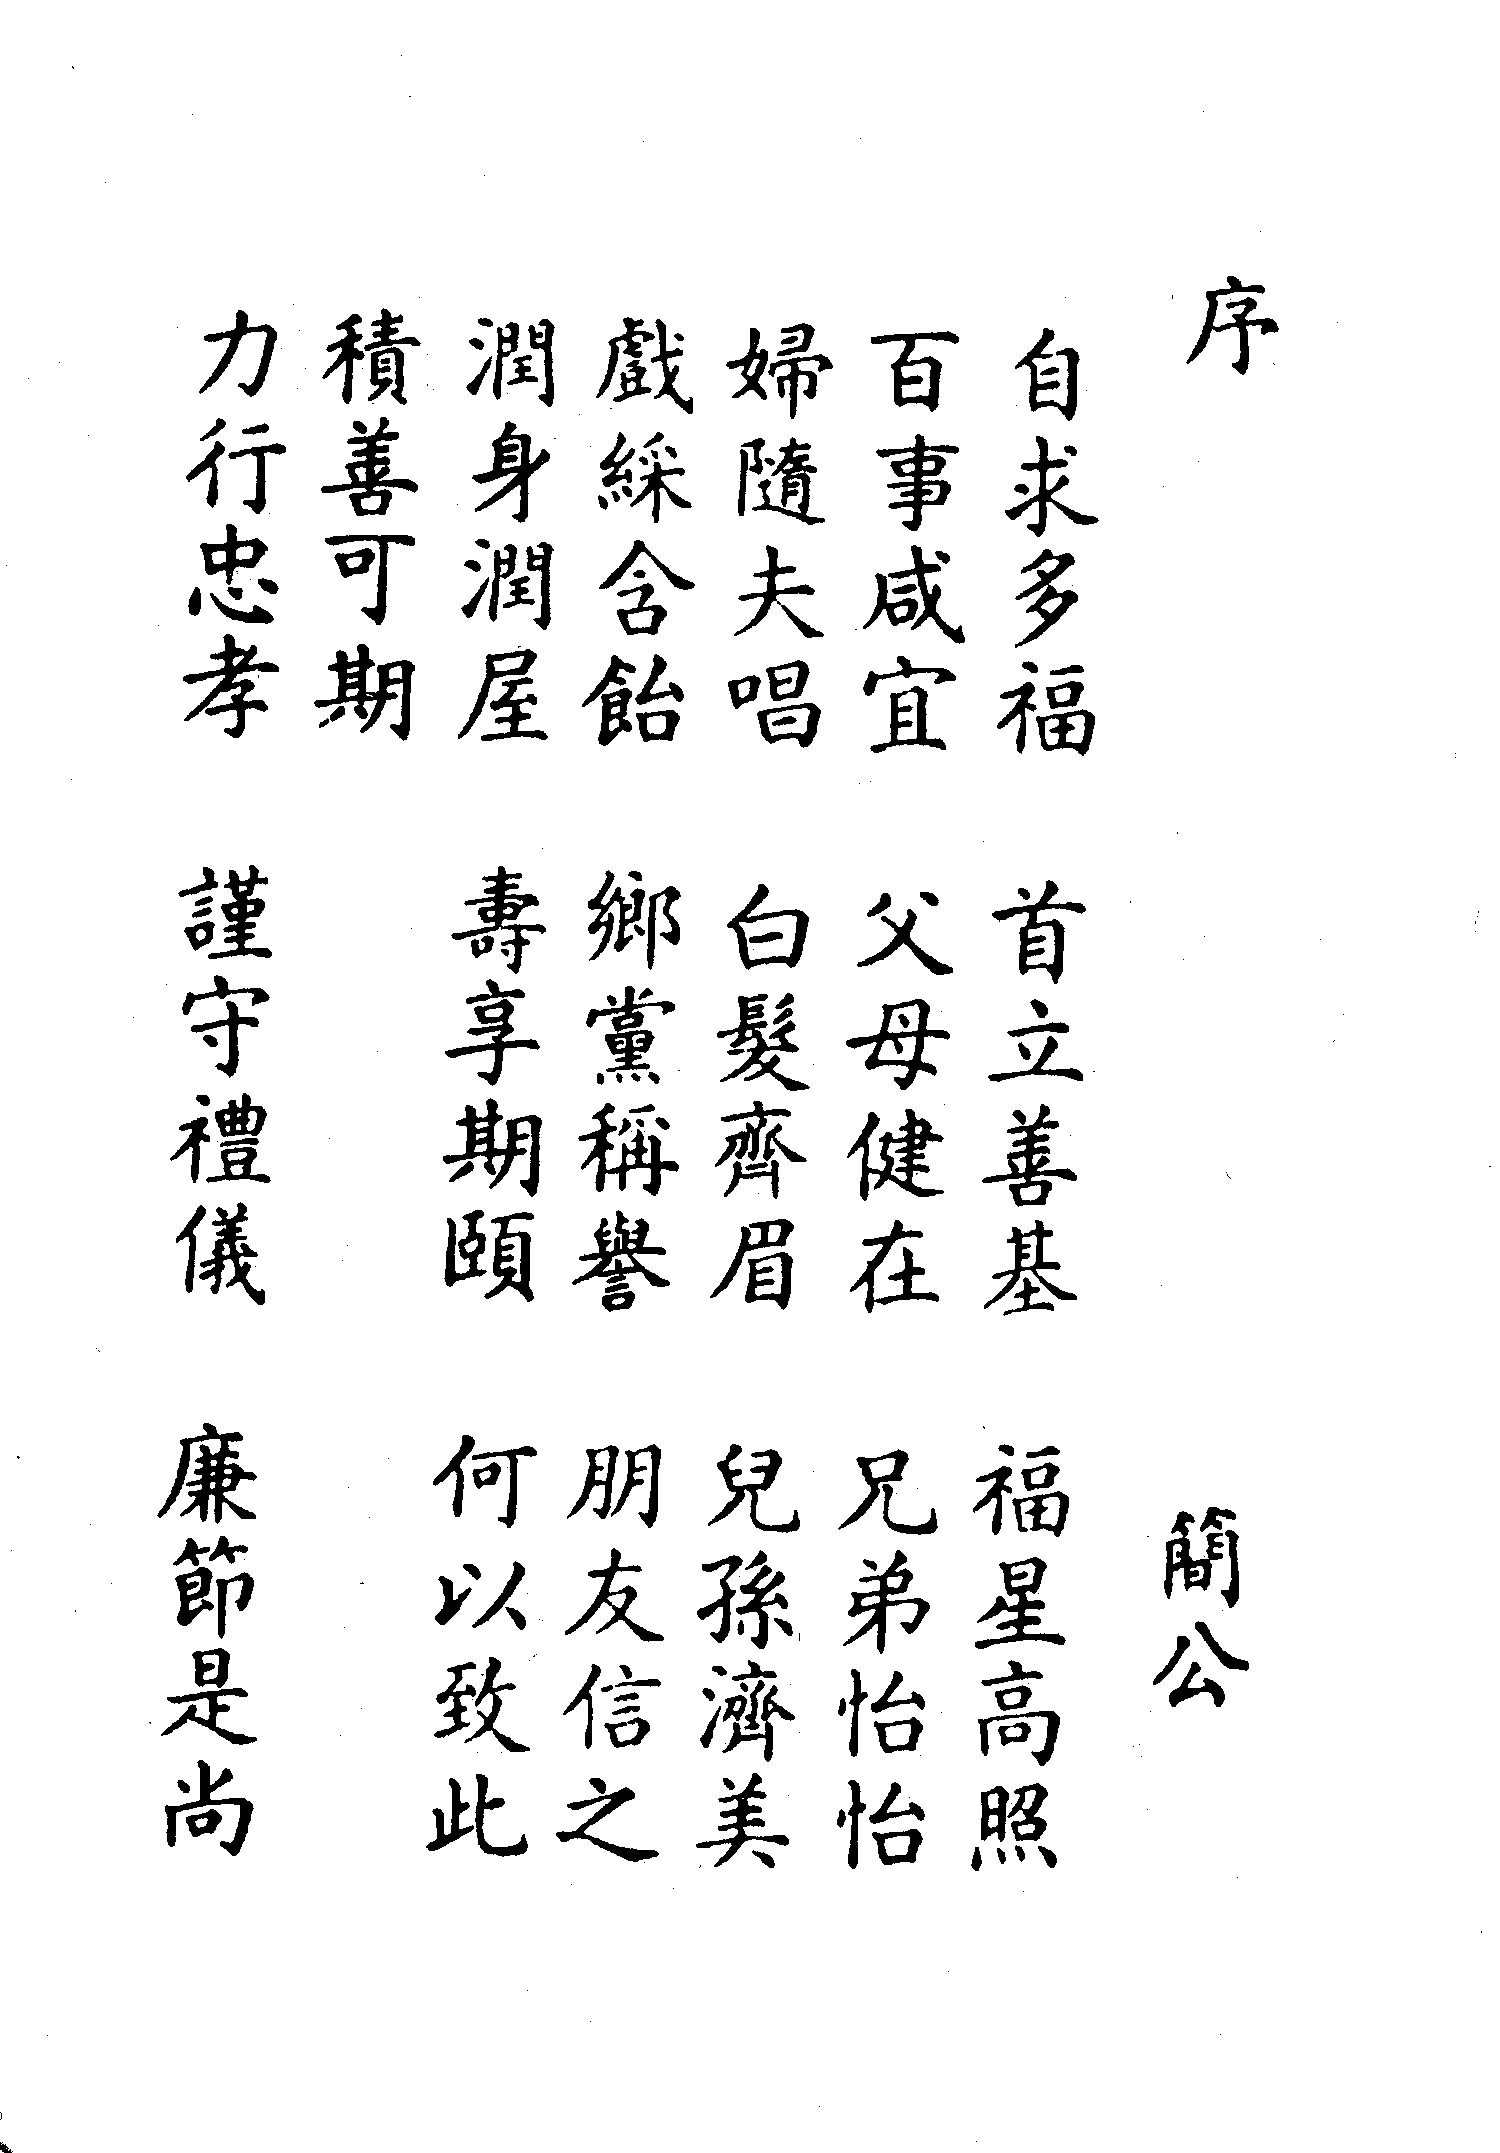 序 簡公
自求多福 首立善基 福星高照
百事咸宜 父母健在 兄弟怡怡
婦隨夫唱 白髮齊眉 兒孫濟美
戲綵含飴 鄉黨稱譽 朋友信之
潤身潤屋 壽享期頤 何以致此
積善可期
力行忠孝 謹守禮儀 廉節是尚